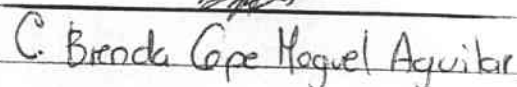 C. Brenda Cope Moguel Aguilar